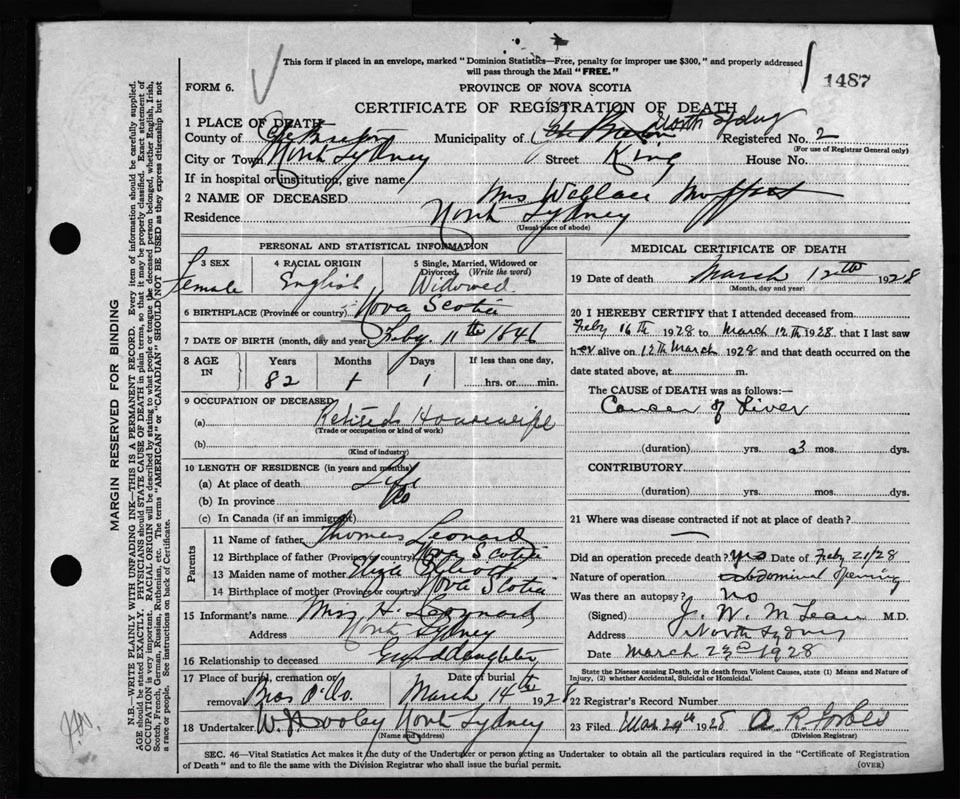 This form if placed in an envelope, marked "Dominion Statistics—Free, penalty for improper use $300," and properly addressed
will pass through the Mail "FREE."
1487
FORM 6.
PROVINCE OF NOVA SCOTIA
CERTIFICATE OF REGISTRATION OF DEATH
1 PLACE OF DEATH
County of Cape Breton Municipality of Cape Breton North Sydney Registered No. 2
(For use of Registrar General only)
City or Town North Sydney Street King House No.
If in hospital or institution, give name
2 NAME OF DECEASED Mrs Wallace Moffatt
Residence North Sydney
(Usual place of abode)
PERSONAL AND STATISTICAL INFORMATION
3 SEX 4 RACIAL ORIGIN 5 Single, Married, Widowed or Divorced. (Write the word)
Female English Widowed
6 BIRTHPLACE (Province or country) Nova Scotia
7 DATE OF BIRTH (month, day and year) Feby. 11th 1846
8 AGE IN Years Months Days If less than one day,
82 1 1 hrs. or min.
9 OCCUPATION OF DECEASED
(a) Retired Housewife
(Trade or occupation or kind of work)
(b)
(Kind of industry)
10 LENGTH OF RESIDENCE (in years and months)
(a) At place of death Life
(b) In province Do
(c) In Canada (if an immigrant)
Parents
11 Name of father Thomas Leonard
12 Birthplace of father (Province or country) Nova Scotia
13 Maiden name of mother Elliott
14 Birthplace of mother (Province or country) Nova Scotia
15 Informant's name H. Leonard
Address North Sydney
16 Relationship to deceased
17 Place of burial, cremation or removal Date of burial
Bras D'Or March 14th 1928
18 Undertaker W. J. Dooley North Sydney
(Name and address)
MEDICAL CERTIFICATE OF DEATH
19 Date of death March 12th 1928
(Month, day and year)
20 I HEREBY CERTIFY that I attended deceased from
Feby 16th 1928 to March 12th 1928. that I last saw
her alive on 12th March 1928 and that death occurred on the
date stated above, at m.
The CAUSE of DEATH was as follows:—
Cancer of Liver
(duration) yrs. 3 mos. dys.
CONTRIBUTORY
(duration) yrs. mos. dys.
21 Where was disease contracted if not at place of death?
Did an operation precede death? yes Date of Feby 21/28
Nature of operation abdominal opening
Was there an autopsy? no
(Signed) J. W. McLean M.D.
Address North Sydney
Date March 23rd 1928
State the Disease causing Death, or in death from Violent Causes, state (1) Means and Nature of
Injury, (2) whether Accidental, Suicidal or Homicidal.
22 Registrar's Record Number
23 Filed Mar 29th 1928 A. R. Forbes
(Division Registrar)
SEC. 46—Vital Statistics Act makes it the duty of the Undertaker or person acting as Undertaker to obtain all the particulars required in the "Certificate of Registration
of Death" and to file the same with the Division Registrar who shall issue the burial permit. (OVER)
MARGIN RESERVED FOR BINDING
N.B.—WRITE PLAINLY WITH UNFADING INK—THIS IS A PERMANENT RECORD. Every item of information should be carefully supplied.
AGE should be stated EXACTLY. PHYSICIANS should STATE CAUSE OF DEATH in plain terms, so that it may be properly classified. Exact statement of
OCCUPATION is very important. RACIAL ORIGIN will be described by stating to what people or tongue the deceased person belonged, whether English, Irish,
Scotch, French, German, Russian, Ruthenian, etc. The terms "AMERICAN" or "CANADIAN" SHOULD NOT BE USED as they express citizenship but not
a race or people. See instructions on back of Certificate.